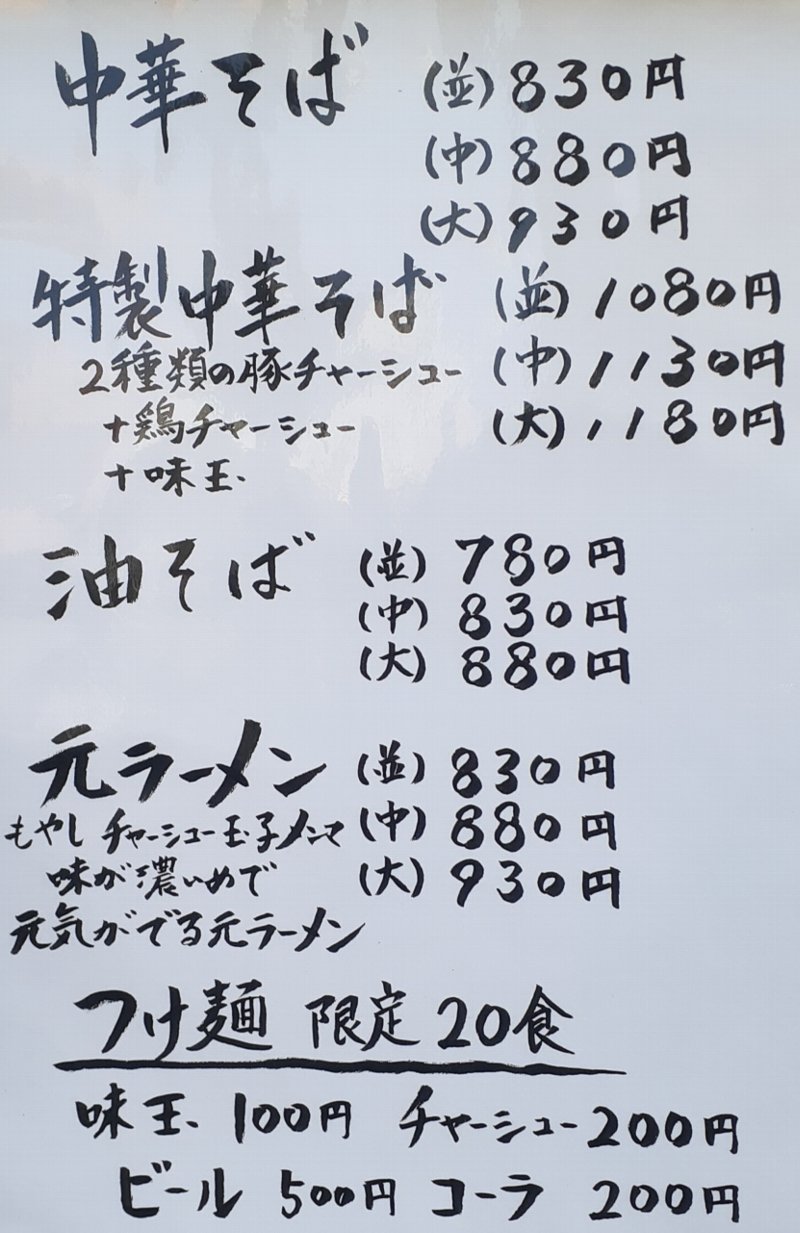 中華そば (並) 830円
(中) 880円
(大) 930円
特製中華そば (並) 1080円
2種類の豚チャーシュー (中) 1130円
+鶏チャーシュー (大) 1180円
+味玉
油そば (並) 780円
(中) 830円
(大) 880円
元ラーメン (並) 830円
もやしチャーシュー玉子メンマ (中) 880円
味が濃いめで (大) 930円
元気がでる元ラーメン
つけ麺 限定20食
味玉 100円 チャーシュー200円
ビール 500円 コーラ 200円